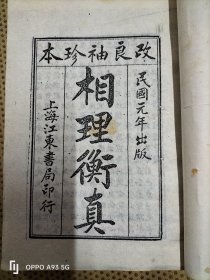 改良袖珍本
民國元年出版
相理衡真
上海江東書局印行
OPPO A93 5G